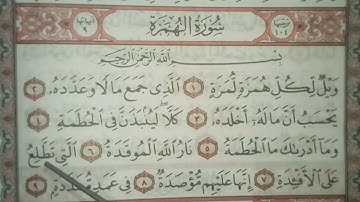 ترتيبها ١٠٤ سُورَةُ الْهُمَزَةِ آياتها ٩
بِسْمِ اللَّهِ الرَّحْمَٰنِ الرَّحِيمِ
وَيْلٌ لِّكُلِّ هُمَزَةٍ لُّمَزَةٍ ١ الَّذِي جَمَعَ مَالًا وَعَدَّدَهُ ٢
يَحْسَبُ أَنَّ مَالَهُ أَخْلَدَهُ ٣ كَلَّا لَيُنبَذَنَّ فِي الْحُطَمَةِ ٤
وَمَا أَدْرَىٰكَ مَا الْحُطَمَةُ ٥ نَارُ اللَّهِ الْمُوقَدَةُ ٦ الَّتِي تَطَّلِعُ
عَلَى الْأَفْـِٔدَةِ ٧ إِنَّهَا عَلَيْهِم مُّؤْصَدَةٌ ٨ فِي عَمَدٍ مُّمَدَّدَةٍ ٩